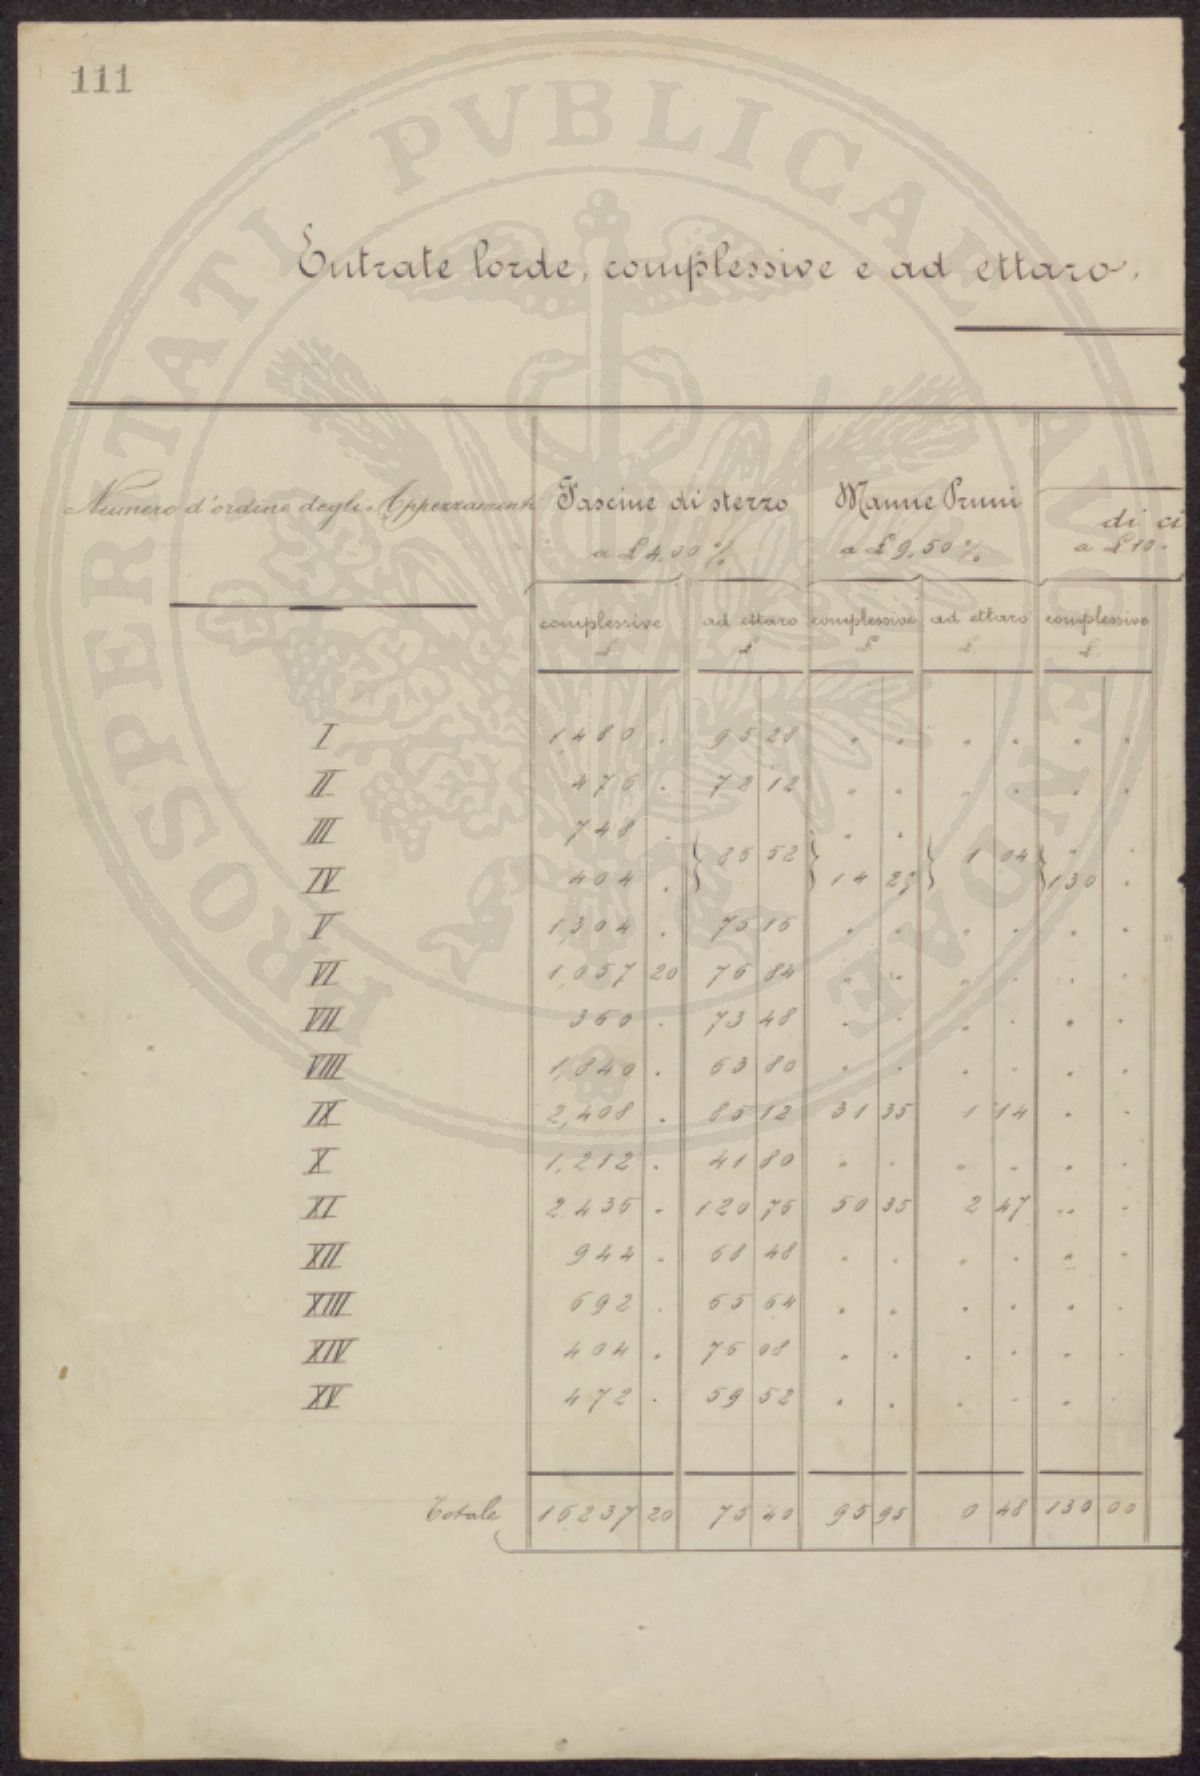 111
PVBLICAE AVOENA EAE PROSPERITATI
Entrate lorde, complessive e ad ettaro.
Numero d'ordine degli Appezzamenti Fascine di sterzo Manne Pruni di ci
a £ 4,00 % a £ 9,50 % a £ 10.
complessive ad ettaro complessive ad ettaro complessive
£ £ £ £ £
I 1,480 . 95 28 . . . . . .
II 476 . 72 12 . . . . . .
III 748 . . . . .
86 52 1 04
IV 404 . 14 25 130 .
V 1304 . 75 16 . . . . . .
VI 1,057 20 76 84 . . . . . .
VII 360 . 73 48 . . . . . .
VIII 1,840 . 63 80 . . . . . .
IX 2,408 . 85 12 31 35 1 14 . .
X 1,212 . 41 80 . . . . . .
XI 2436 . 120 76 50 35 2 47 . .
XII 944 . 68 48 . . . . . .
XIII 692 . 65 64 . . . . . .
XIV 404 . 76 08 . . . . . .
XV 472 . 59 52 . . . . . .
Totale 16237 20 75 40 95 95 0 48 130 00